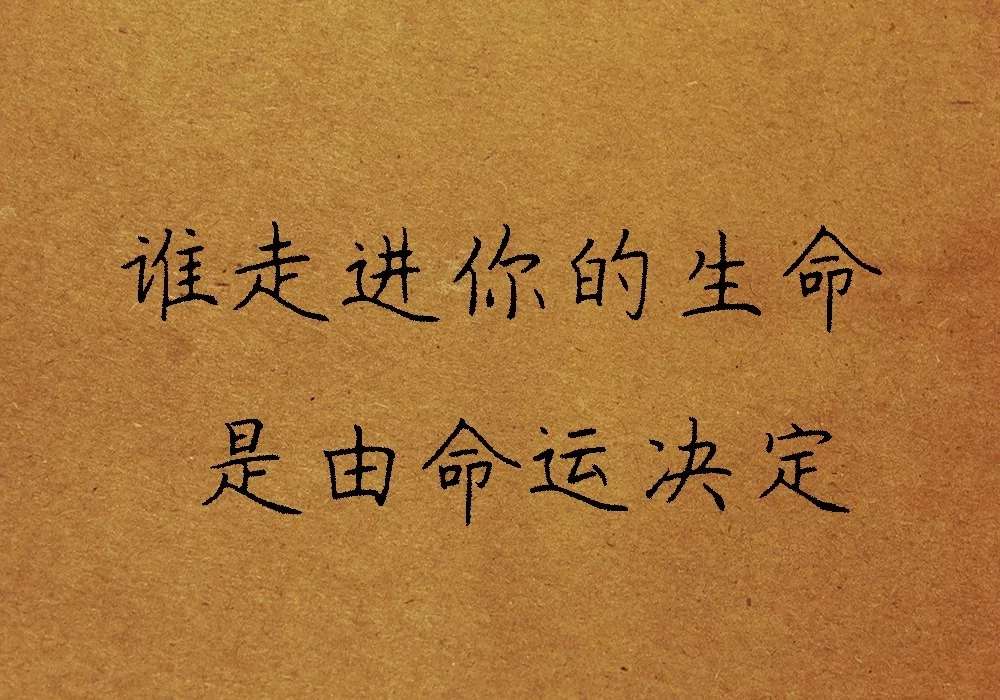 谁走进你的生命
是由命运决定